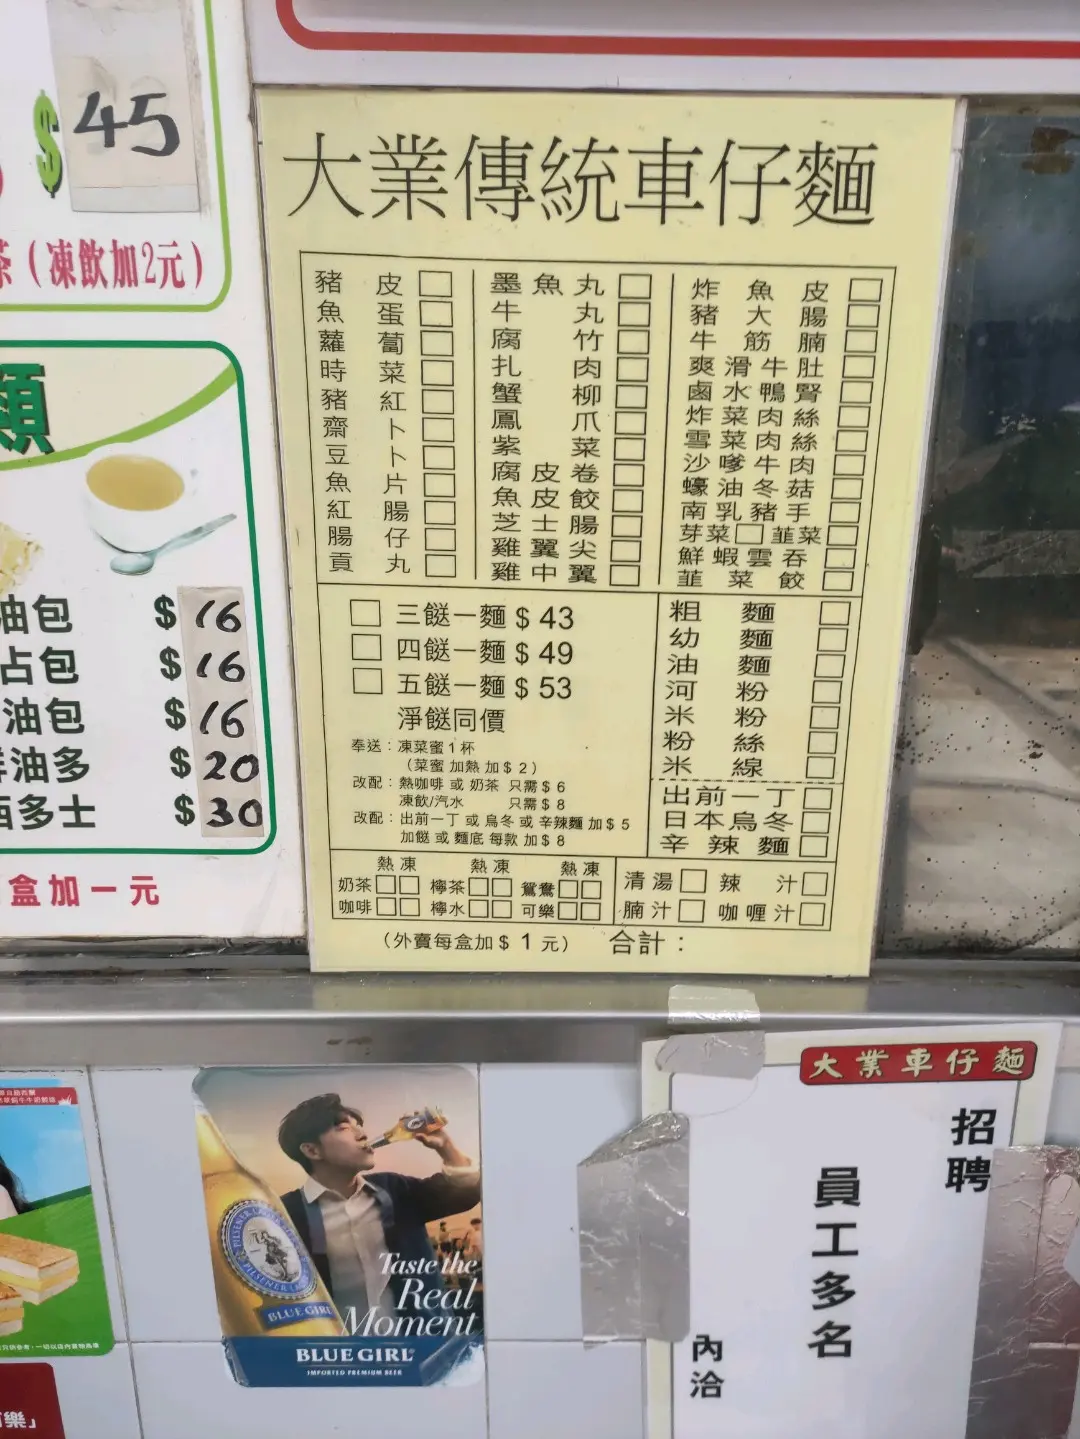 $ 45
茶（凍飲加2元）
類
油包 $ 16
占包 $ 16
油包 $ 16
油多 $ 20
西多士 $ 30
盒加一元
大業傳統車仔麵
豬皮 □ 墨魚丸 □ 炸魚皮 □
魚蛋 □ 牛丸 □ 豬大腸 □
蘿蔔 □ 腐竹 □ 牛筋腩 □
時菜 □ 扎肉 □ 爽滑牛肚 □
豬紅 □ 蟹柳 □ 鹵水鴨腎 □
齋卜 □ 鳳爪 □ 炸菜肉絲 □
豆卜 □ 紫菜 □ 雪菜肉絲 □
魚片 □ 腐皮卷 □ 沙嗲牛肉 □
紅腸 □ 魚皮餃 □ 蠔油冬菇 □
腸仔 □ 芝士腸 □ 南乳豬手 □
貢丸 □ 雞翼尖 □ 芽菜 □ 韮菜 □
雞中翼 □ 鮮蝦雲吞 □
韮菜餃 □
□ 三餸一麵 $ 43
□ 四餸一麵 $ 49
□ 五餸一麵 $ 53
淨餸同價
奉送：凍菜蜜1杯
（菜蜜 加熱 加 $ 2）
改配：熱咖啡 或 奶茶 只需 $ 6
凍飲/汽水 只需 $ 8
改配：出前一丁 或 烏冬 或 辛辣麵 加 $ 5
加餸 或 麵底 每款 加 $ 8
粗麵 □
幼麵 □
油麵 □
河粉 □
米粉 □
粉絲 □
米線 □
出前一丁 □
日本烏冬 □
辛辣麵 □
熱 凍 熱 凍 熱 凍
奶茶 □□ 檸茶 □□ 鴛鴦 □□
咖啡 □□ 檸水 □□ 可樂 □□
清湯 □ 辣汁 □
腩汁 □ 咖喱汁 □
（外賣每盒加 $ 1 元） 合計：
大業車仔麵
招聘
員工多名
內洽
PILSENER
BLUE GIRL
Taste the
Real
Moment
BLUE GIRL
IMPORTED PREMIUM BEER
樂」